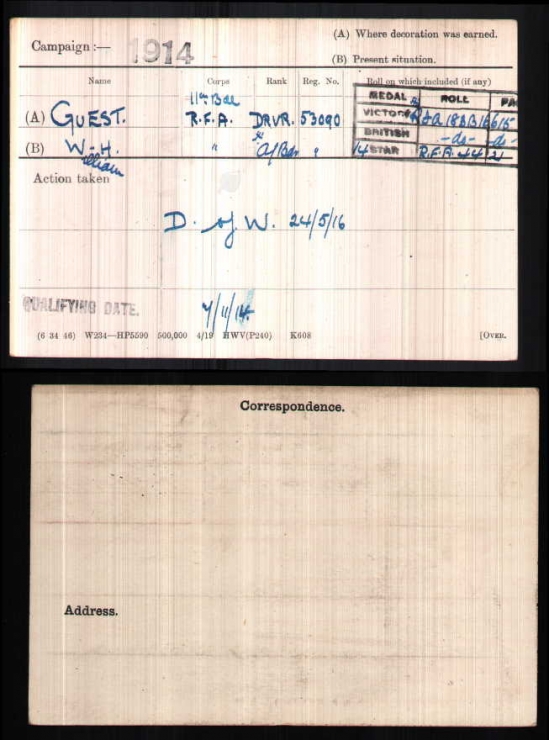 (A) Where decoration was earned.
Campaign :— 1914
(B) Present situation.
Name Corps Rank Reg. No. Roll on which included (if any)
MEDAL ROLL PA
11th Bde
(A) GUEST. R.F.A. DRVR. 53090 VICTORY 6615
BRITISH -do- -do-
(B) W. H. " A/Bdr " 14 STAR R.F.A. 44 21
William
Action taken
D. of W. 24/5/16
QUALIFYING DATE. 7/11/14.
(6 34 46) W234—HP5590 500,000 4/19 HWV(P240) K608 [OVER.
Correspondence.
Address.